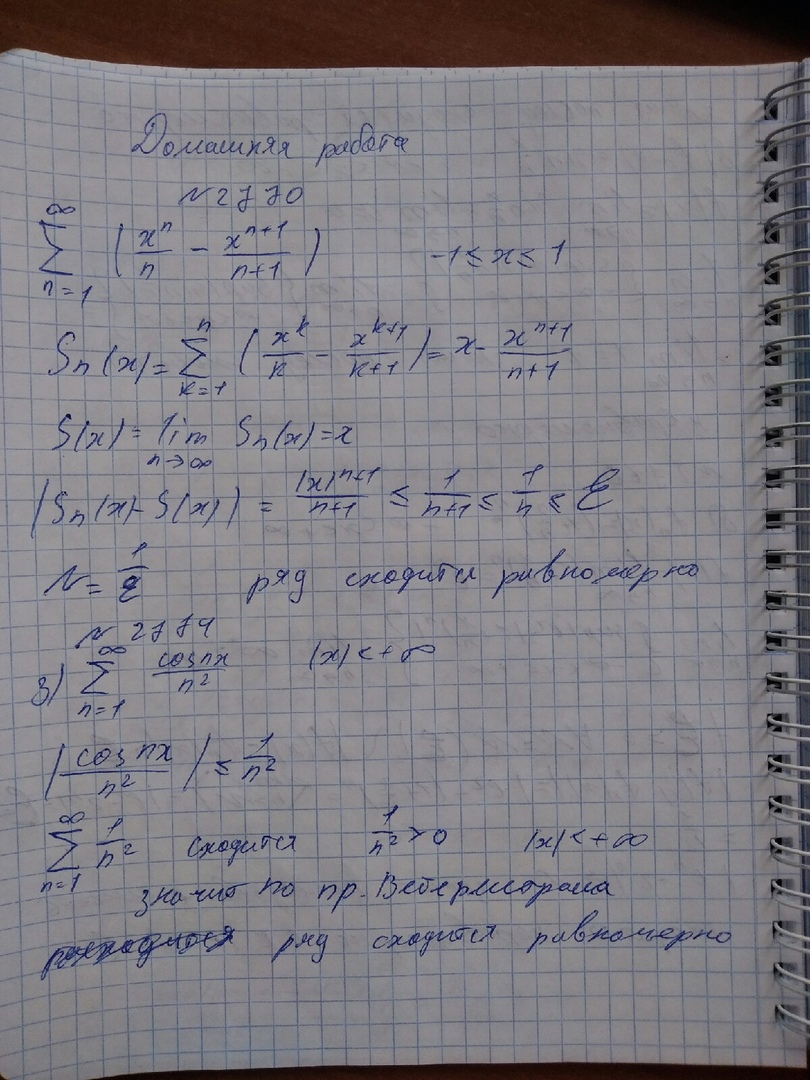 Домашняя работа
№ 2770
∑_{n=1}^{∞} (x^n/n - x^{n+1}/(n+1)) -1 ≤ x ≤ 1
S_n(x) = ∑_{k=1}^{n} (x^k/k - x^{k+1}/(k+1)) = x - x^{n+1}/(n+1)
S(x) = lim_{n→∞} S_n(x) = x
|S_n(x) - S(x)| = |x|^{n+1}/(n+1) ≤ 1/(n+1) ≤ 1/n ≤ ε
N = 1/ε ряд сходится равномерно
№ 2774
з) ∑_{n=1}^{∞} cos nx/n² |x| < +∞
|cos nx/n²| ≤ 1/n²
∑_{n=1}^{∞} 1/n² сходится 1/n² > 0 |x| < +∞
значит по пр. Вейерштрасса
ряд сходится равномерно